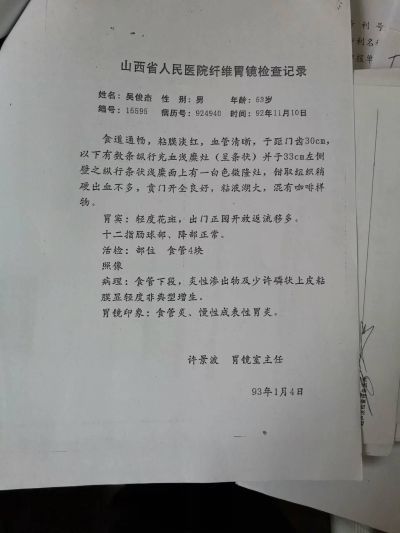 山西省人民医院纤维胃镜检查记录
姓名：吴俊杰 性 别：男 年龄：53岁
编号：15595 病历号：924940 时间：92年11月10日
食道通畅，粘膜淡红，血管清晰，于距门齿30cm，
以下有数条纵行充血浅糜灶（呈条状）并于33cm左侧
壁之纵行条状浅糜面上有一白色微隆灶，钳取组织稍
硬出血不多，贲门开全良好，粘液湖大，混有咖啡样
物。
胃窦：轻度花斑，出门正园开放返流移多。
十二指肠球部、降部正常。
活检：部位 食管4块
照像
病理：食管下段，炎性渗出物及少许磷状上皮粘
膜显轻度非典型增生。
胃镜印象：食管炎、慢性成表性胃炎。
许景波 胃镜室主任
93年1月4日
利 号
利名